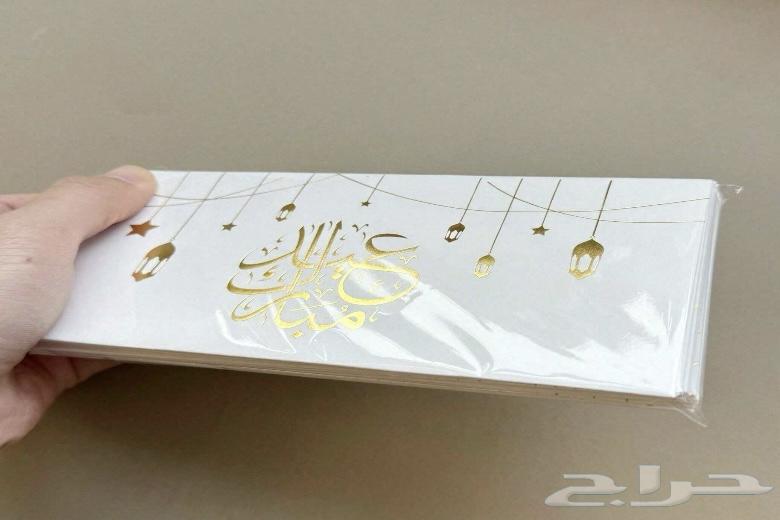 عيدك
مبارك
حراج